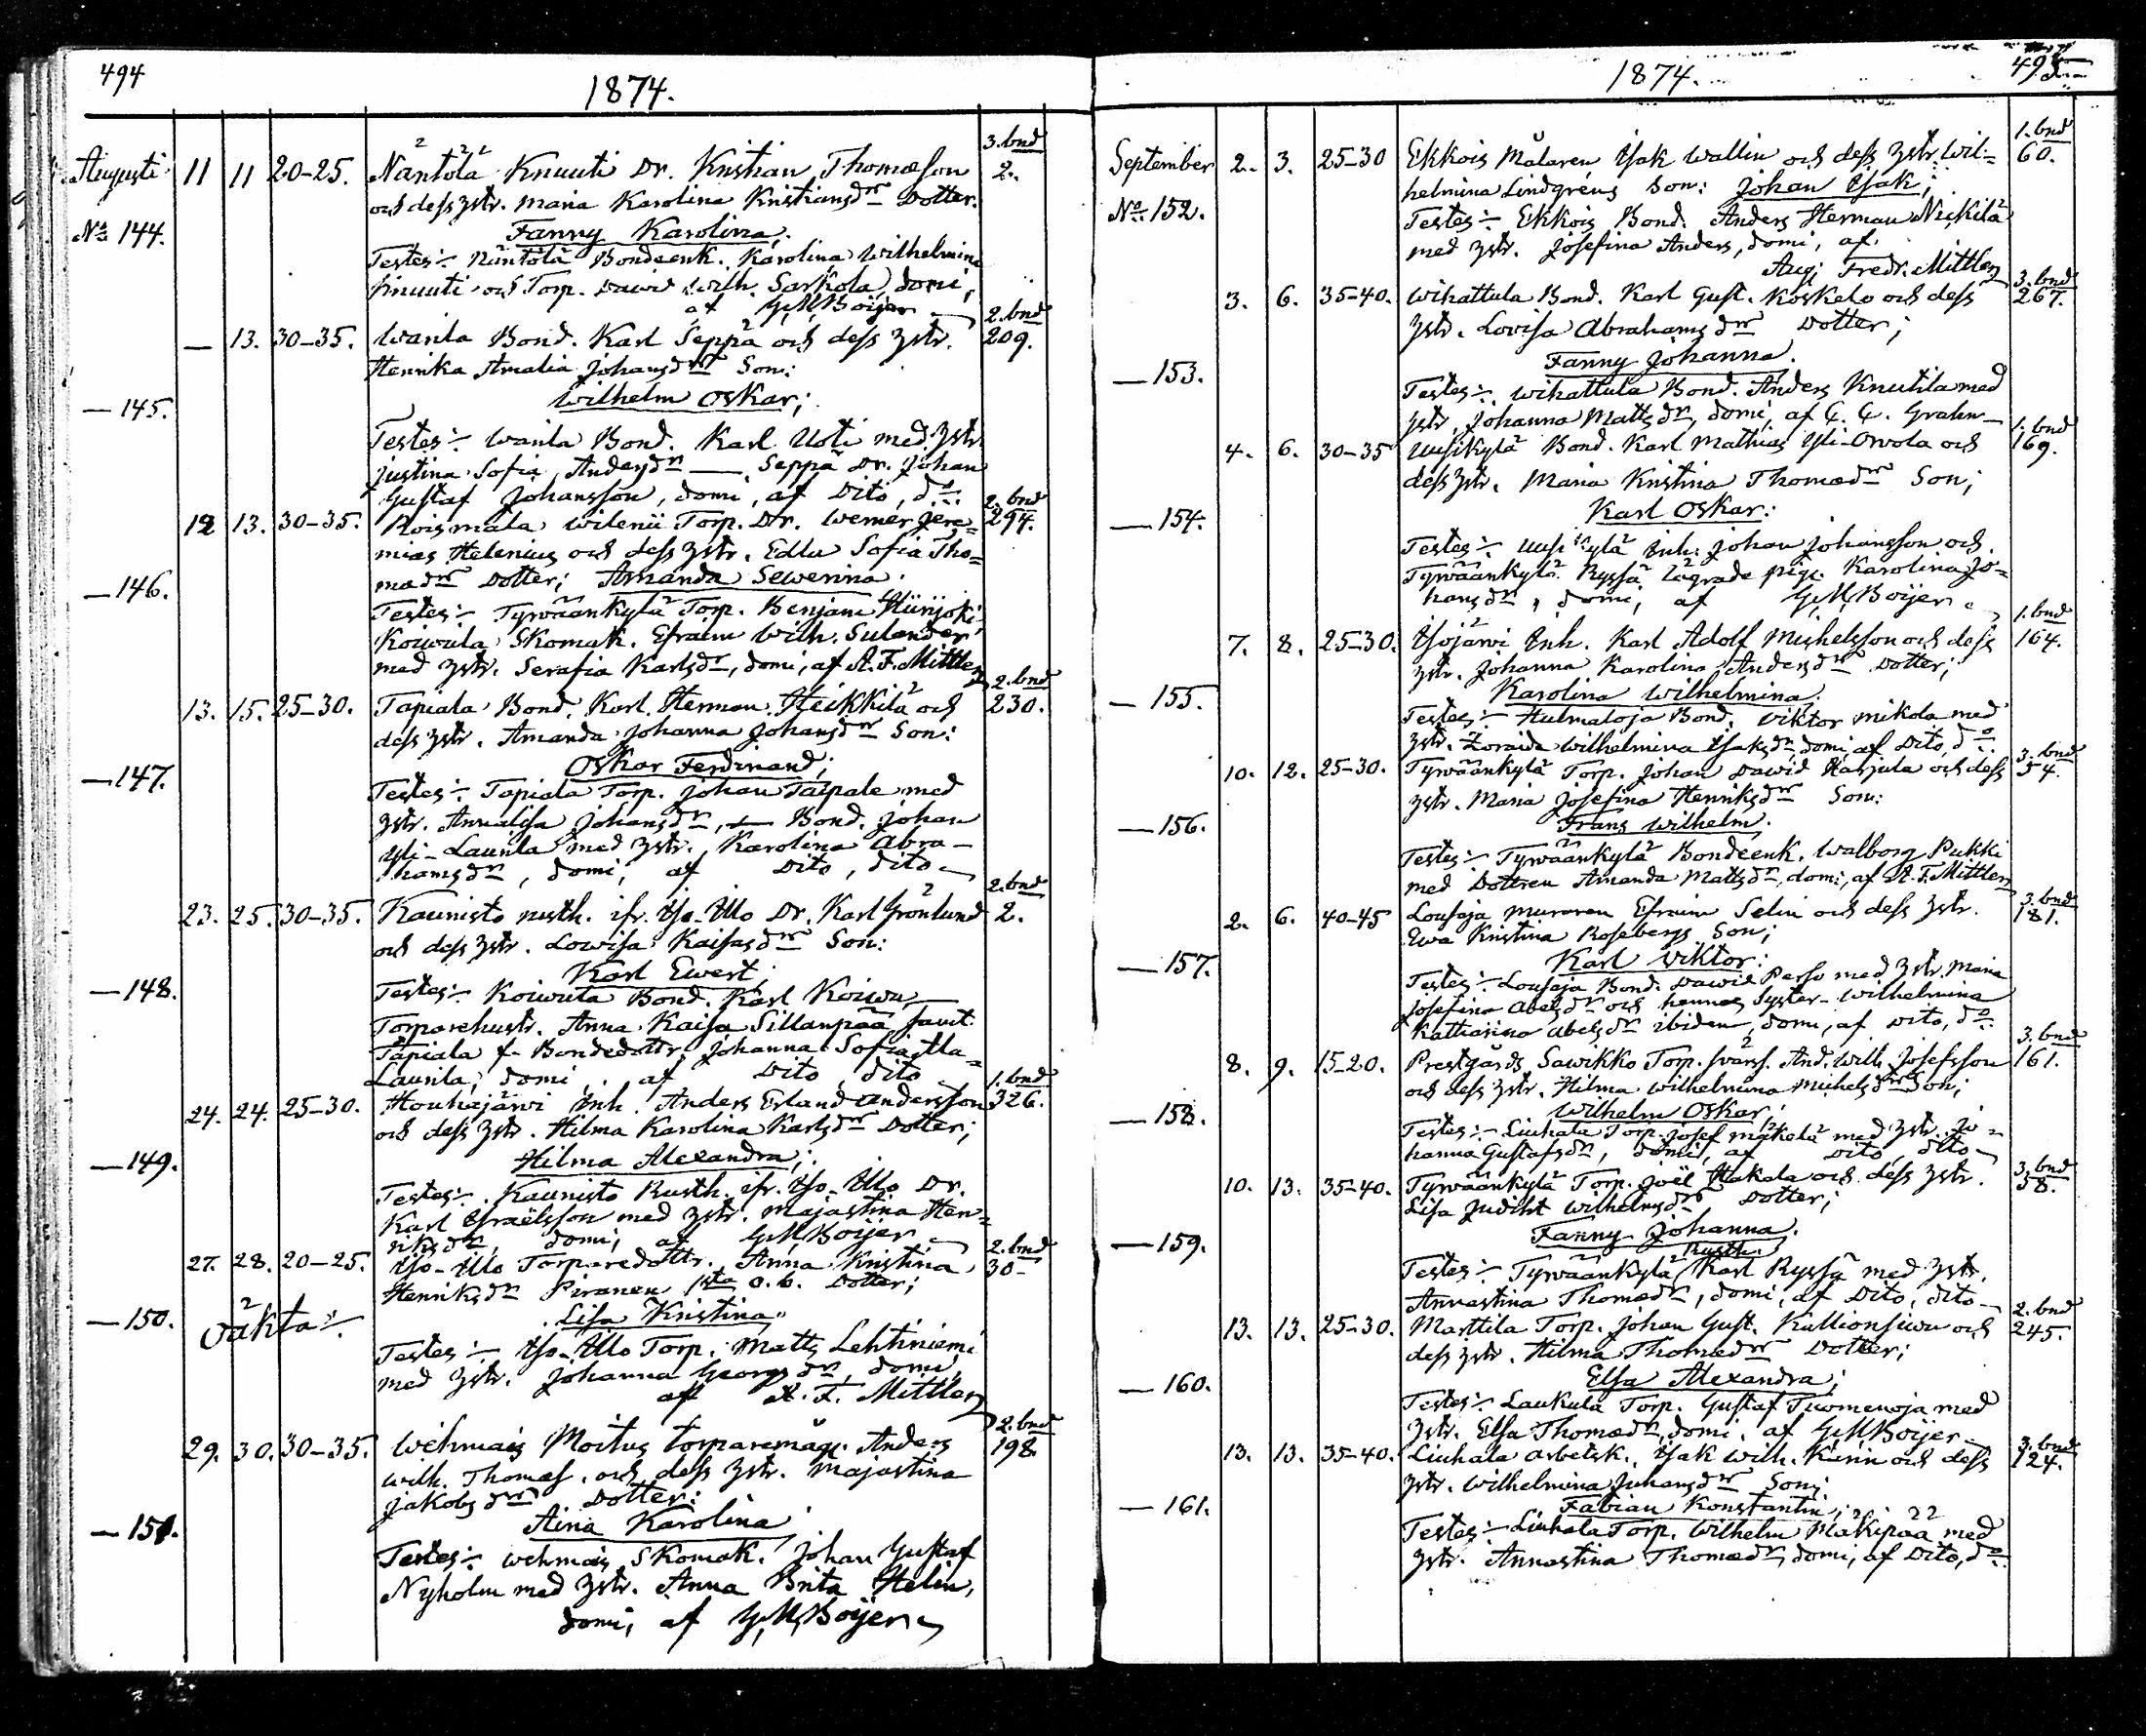 494
1874.
3. bnd
Augusti 11 11 20-25. Näntölä Knuuti Dr. Kristian Thomasson 2.
och dess hstr. Maria Karolina Kristiansdr Dotter.
No 144. Fanny Karolina.
Testes: Näntölä Bondeenk. Karolina Wilhelmina
Knuuti och Torp. Dawid Wilh. Sarkola, domi,
af G.M. Boijer
2. bnd
— 13. 30-35. Wanila Bond. Karl Seppä och dess hstr. 209.
Henrika Amalia Johansdr Son:
— 145. Wilhelm Oskar;
Testes: Wanila Bond. Karl Uoti med hstr
Justina Sofia Andersdr — Seppä Dr. Johan
Gustaf Johansson, domi, af Dito, do.
2. bnd
12 13. 30-35. Roismala Wilenii Torp. Dr. Werner Jere- 294.
mias Helenius och dess hstr. Edla Sofia Tho-
masdr Dotter; Amanda Sewerina.
— 146.
Testes: Tyrwäänkylä Torp. Benjam Hiirijoki
Koiwula Skomak. Efraim Wilh. Sulander
med hstr. Serafia Karlsdr, domi, af A. F. Mittler
2. bnd
13. 15. 25-30. Tapiala Bond. Karl Herman Heikkilä och 230.
dess hstr. Amanda Johanna Johansdr Son:
— 147. Oskar Ferdinand;
Testes: Tapiala Torp. Johan Taipale med
hstr. Annalisa Johansdr, — Bond. Johan
Yli-Launila med hstr. Karolina Abra-
hamsdr, domi, af Dito, dito
2. bnd
23. 25. 30-35. Kaunisto rusth. ifr. Iso-Illo Dr. Karl Grönlund 2.
och dess hstr. Lowisa Kaisasdr Son:
— 148. Karl Ewert;
Testes: Koiwula Bond. Karl Koiwu,
Torparehustr. Anna Kaisa Sillanpää samt
Tapiala f. Bondedottr. Johanna Sofia Ala-
Launila, domi, af Dito dito
1. bnd
24. 24. 25-30. Houhajärwi Inh. Anders Erland Andersson 326.
och dess hstr. Hilma Karolina Karlsdr Dotter;
— 149. Hilma Alexandra;
Testes: Kaunisto Rusth. ifr. Iso-Illo Dr.
Karl Israëlsson med hstr. Majastina Hen-
riksdr domi, af G.M. Boijer
2. bnd
27. 28. 20-25. Iso-Illo Torparedottr. Anna Kristina 30-
Henriksdr Piranen 1sta o. b. Dotter;
— 150. oäkta: Lisa Kristina;
Testes: Iso-Illo Torp. Matts Lehtiniemi
med hstr. Johanna Georgsdr, domi,
af A. F. Mittler
2. bnd
29. 30. 30-35. Wehmais Moitus torparemåg. Anders 198.
Wilh. Thomas. och dess hstr. Majastina
Jakobsdr Dotter:
— 151. Aina Karolina
Testes: Wehmais Skomak. Johan Gustaf
Nyholm med hstr. Anna Brita Helin,
domi, af G.M. Boijer
1874.
495
1. bnd
September 2. 3. 25-30 Ekkois Målaren Isak Wallin och dess hstr. Wil- 60.
helmina Lindgréns Son: Johan Isak;
No. 152. Testes: Ekkois Bond. Anders Herman Nickilä
med hstr. Josefina Anders, domi, af
Aug. Fredr. Mittler
3. bnd
3. 6. 35-40. Wihattula Bond. Karl Gust. Koskelo och dess 267.
hstr. Lovisa Abrahamsdr Dotter;
Fanny Johanna.
— 153. Testes: Wihattula Bond. Anders Knutila med
hstr. Johanna Mattsdr, domi, af C. C. Grahn
1. bnd
4. 6. 30-35 Uusikylä Bond. Karl Mathias Yli-Orvola och 169.
dess hstr. Maria Kristina Thomasdr Son;
— 154. Karl Oskar:
Testes: Uusikylä Inh. Johan Johansson och
Tyrwäänkylä Ryssä lägrade pig. Karolina Jo-
hansdr, domi, af G.M. Boijer
1. bnd
7. 8. 25-30. Isojärwi Inh. Karl Adolf Michelsson och dess 164.
hstr. Johanna Karolina Andersdr Dotter;
— 155. Karolina Wilhelmina.
Testes: Hulmaloja Bond. Viktor Mikola med
hstr. Zoraida Wilhelmina Isaksdr, domi, af Dito, do.
3. bnd
10. 12. 25-30. Tyrwäänkylä Torp. Johan Dawid Harjula och dess 54.
hstr. Maria Josefina Henriksdr Son:
— 156. Frans Wilhelm.
Testes: Tyrwäänkylä Bondeenk. Walborg Pukki
med Dottren Amanda Mattsdr, domi, af A. F. Mittler
3. bnd
2. 6. 40-45 Lousaja Muraren Efraim Selin och dess hstr. 181.
Ewa Kristina Rosebergs Son;
— 157. Karl Viktor:
Testes: Lousaja Bond. Dawid Perho med hstr. Maria
Josefina Abelsdr och hennes Syster Wilhelmina
Kathariina Abelsdr ibidem, domi, af Dito, do.
3. bnd
8. 9. 15-20. Prestgårds Sawikko Torp. svärs. And. Wilh. Josefsson 161.
och dess hstr. Hilma Wilhelmina Michelsdr Son;
— 158. Wilhelm Oskar;
Testes: Liuhala Torp. Josef Mäkelä med hstr. Jo-
hanna Gustafsdr, domi, af Dito, dito
3. bnd
10. 13. 35-40. Tyrwäänkylä Torp. Joël Hakala och dess hstr. 58.
Lisa Judiht Wilhelmsdr Dotter;
— 159. Fanny Johanna.
Testes: Tyrwäänkylä Rusth. Karl Ryssä med hstr.
Annastina Thomasdr, domi, af Dito, dito
2. bnd
13. 13. 25-30. Marttila Torp. Johan Gust. Kallionsiwu och 245.
dess hstr. Hilma Thomasdr Dotter;
— 160. Elsa Alexandra;
Testes: Laukula Torp. Gustaf Tuomenoja med
hstr. Elsa Thomasdr, domi, af G.M. Boijer
3. bnd
13. 13. 35-40. Liuhala arbetsk. Isak Wilh. Kärin och dess 124.
hstr. Wilhelmina Juhansdr Son;
— 161. Fabian Konstantin;
Testes: Liuhala Torp. Wilhelm Mäkipää med
hstr. Annastina Thomasdr, domi, af Dito, do.